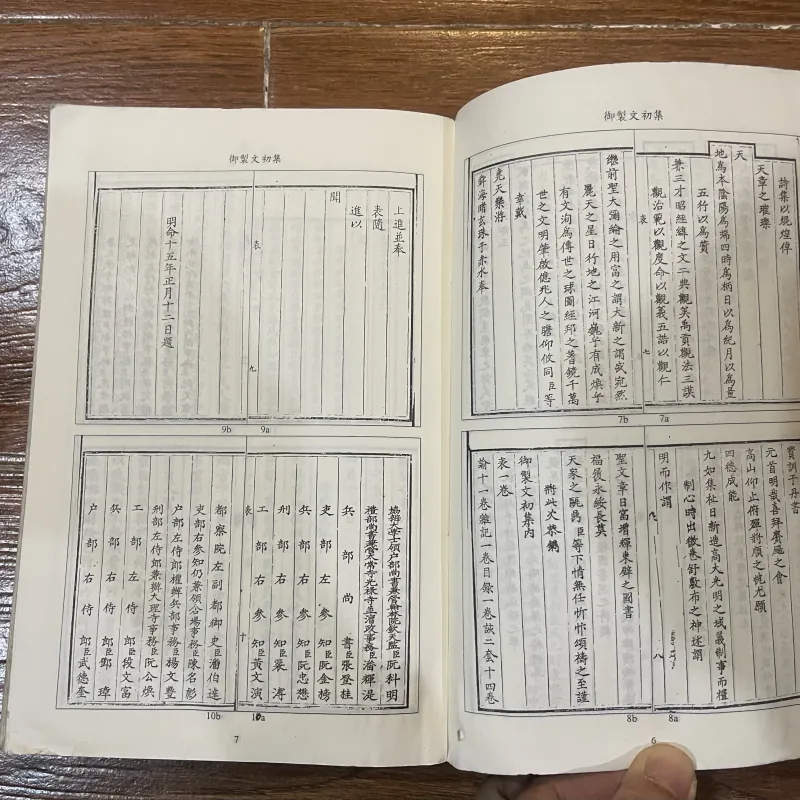 御製文初集
詩集以焜煌倬
天章之璀璨
天
地爲本陰陽爲端四時爲柄日以爲紀月以爲量
五行以爲質
兼三才昭經緯之文二典觀美禹貢觀法三謨
觀治範以觀度命以觀義五誥以觀仁
表
七
繼前聖大彌綸之用富之謂大新之謂盛宛然
麗天之星日行地之江河巍乎有成煥乎
有文洵爲傳世之球圖經邦之蓍鏡千萬
世之文明肇啟億兆人之瞻仰攸同臣等
幸戴
堯天樂游
舜海睹玄珠于赤水奉
7b 7a
寶訓于丹書
元首明哉喜拜賡颺之會
高山仰止俯殫將順之忱尤願
四德咸能
九如集祉日新造高大光明之域義制事而禮
制心時出卷舒敷布之神述謂
明而作謂
八
聖文章日富增輝東壁之圖書
福履永綏長奠
天家之臣等下情無任忻忭頌禱之至謹
將此次恭鐫
御製文初集內
表一卷
諭十一卷雜記一卷目録一卷該二套十四卷
8b 8a
6
御製文初集
上進並奉
表隨
進以
聞
表
九
明命十五年正月十二日題
9b 9a
協辦大學士領户部尚書兼管翰林院欽天監臣阮科明
禮部尚書兼管太常寺光祿寺並漕政事務臣潘輝湜
兵部尚書臣張登桂
吏部左參知臣阮金榜
兵部右參知臣阮忠懋
刑部右參知臣裴溥
工部右參知臣黄文演
表
十
都察院左副都御史臣潘伯達
吏部右參知仍兼領倉場事務臣陳名彪
户部左侍郎權辦兵部事務臣楊文豐
刑部左侍郎兼辦大理寺事務臣阮公煥
工部左侍郎臣段文富
兵部右侍郎臣鄧璋
户部右侍郎臣武德奎
10b 10a
7